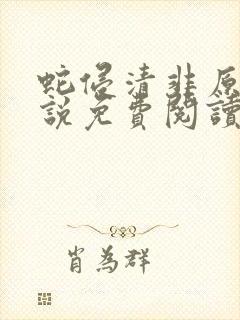 蛇侵清韭原
說免費閱讀
肖為群